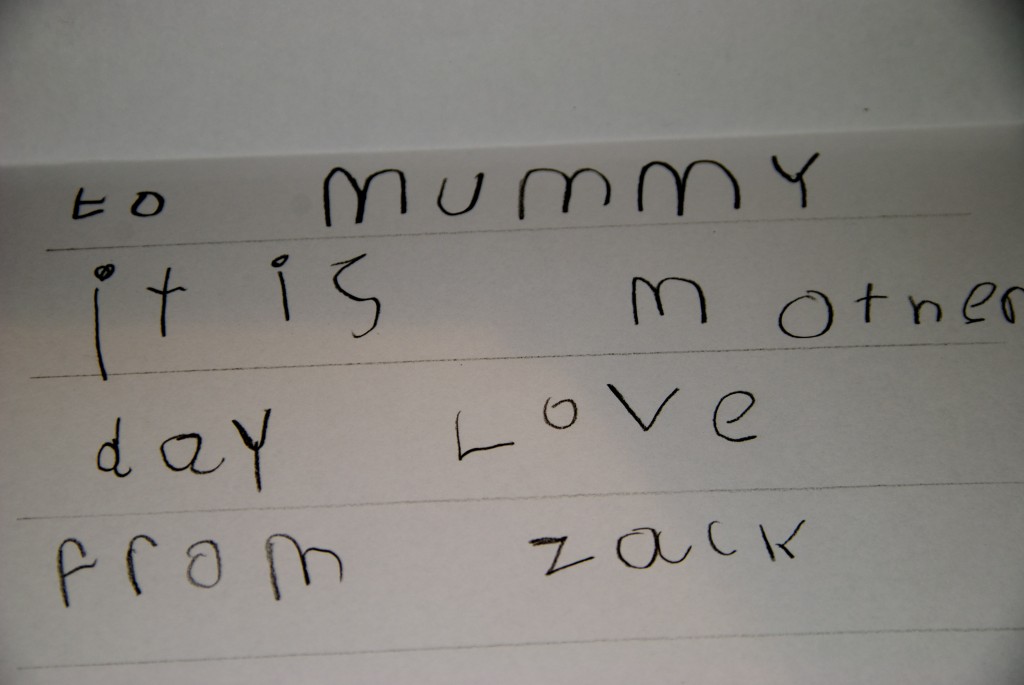 to mummy
it is mother
day Love
from zack